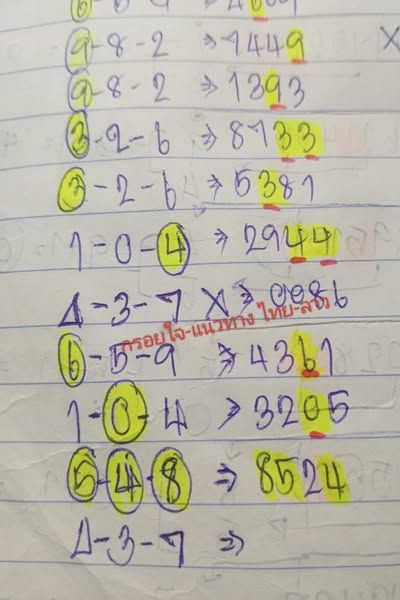 9-8-2 => 1449 X
9-8-2 => 1393
3-2-6 => 8733
3-2-6 => 5381
1-0-4 => 2944
4-3-7 X => 0086
กรอยใจ-แนวทาง ไทย-ลาว
6-5-9 => 4361
1-0-4 => 3205
5-4-8 => 8524
4-3-7 =>